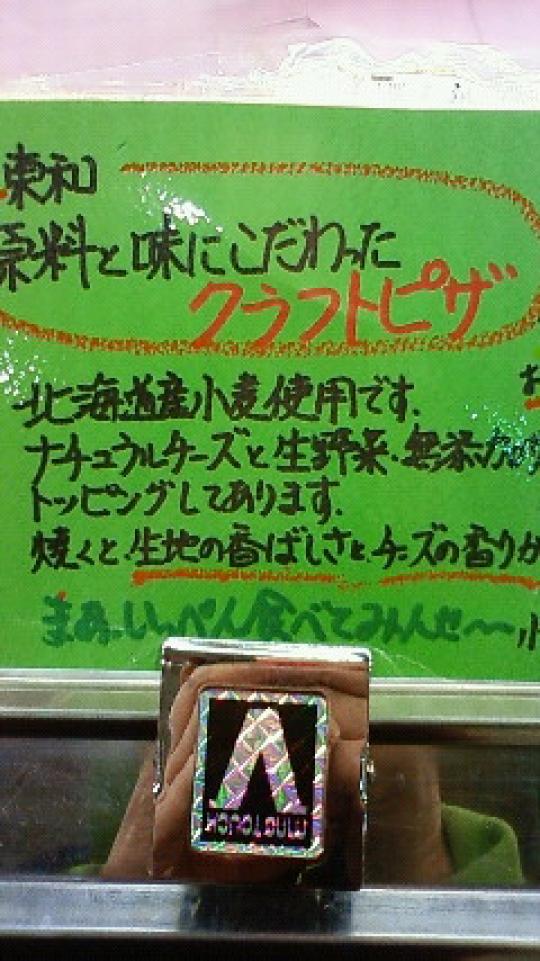 東和
原料と味にこだわった
クラフトピザ
お
北海道産小麦使用です.
ナチュウルチーズと生野菜・無添
トッピングしてあります.
焼くと、生地の香ばしさと、チーズの香りが
まあ、いっぺん食べてみんせ〜〜